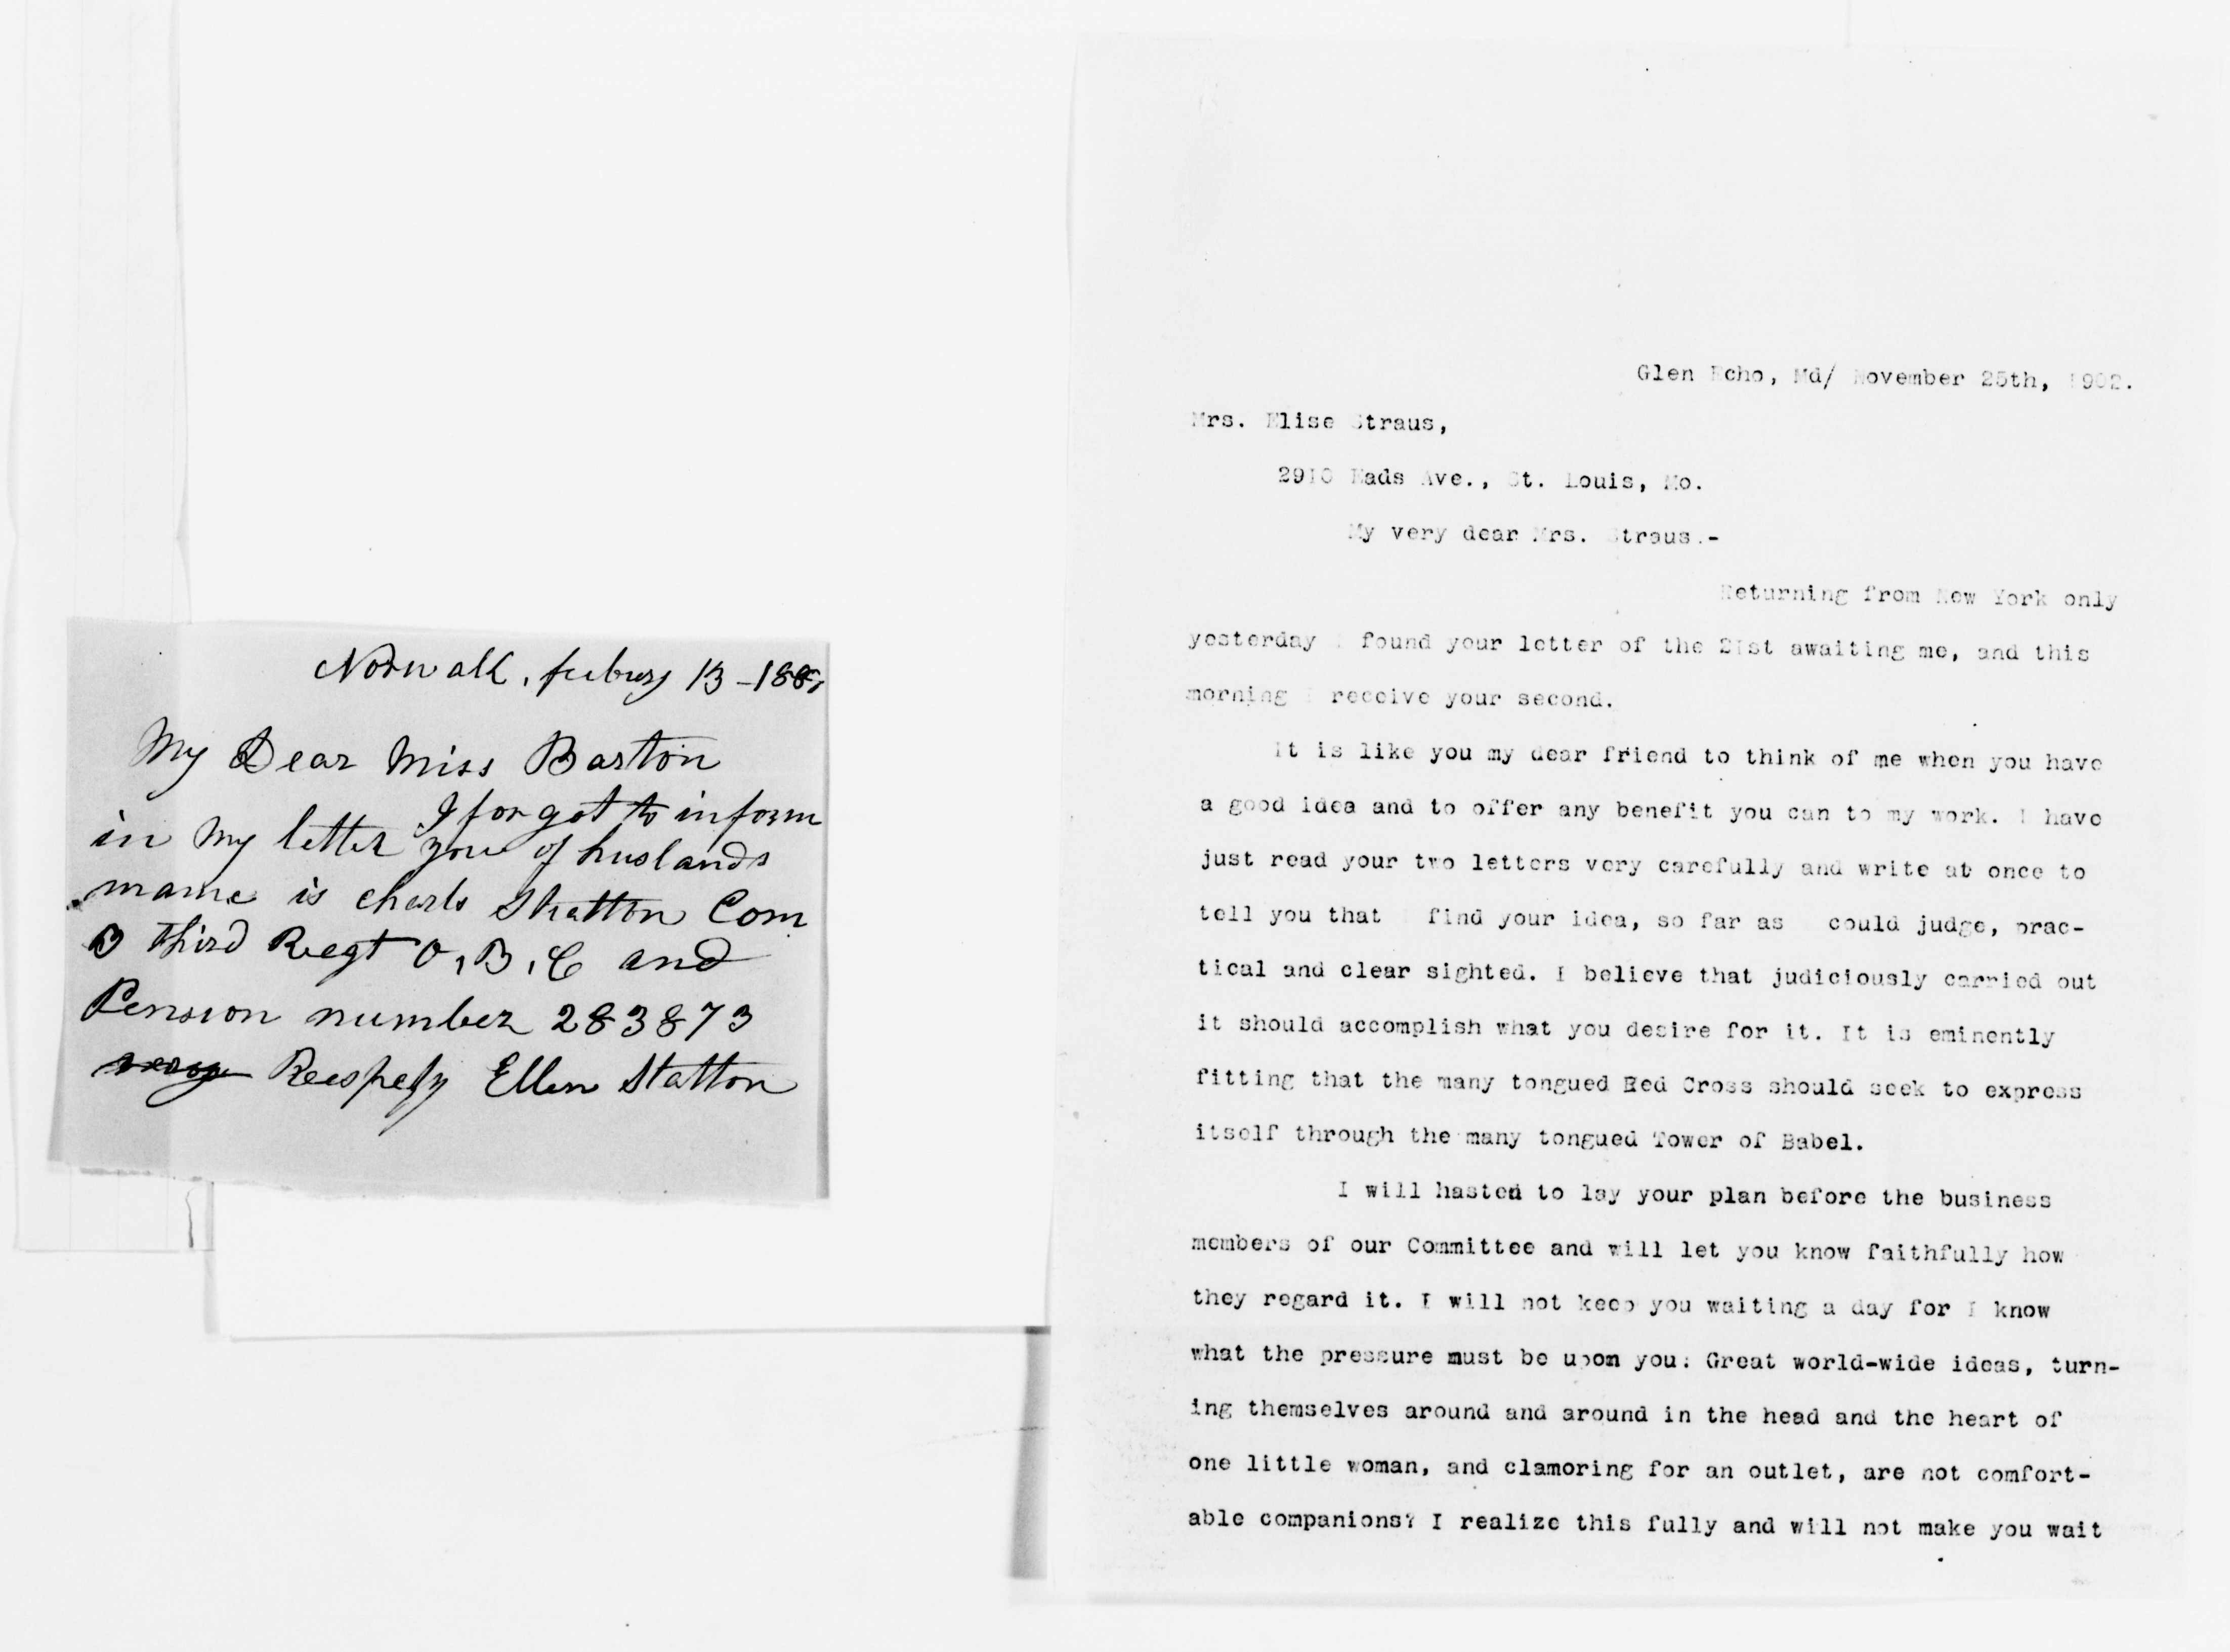 Norwalk, feebury 13 - 188
My Dear Miss Barton
I forgot to inform
in my letter you of huslands
mame is charls Stratton Com
D third Regt O, B, C and
Pension number 283873
Reespefy Ellen Statton
Glen Echo, Md/ November 25th, 1902.
Mrs. Elise Straus,
2910 Eads Ave., St. Louis, Mo.
My very dear Mrs. Straus.-
Returning from New York only
yesterday I found your letter of the 21st awaiting me, and this
morning I receive your second.
It is like you my dear friend to think of me when you have
a good idea and to offer any benefit you can to my work. I have
just read your two letters very carefully and write at once to
tell you that I find your idea, so far as I could judge, prac-
tical and clear sighted. I believe that judiciously carried out
it should accomplish what you desire for it. It is eminently
fitting that the many tongued Red Cross should seek to express
itself through the many tongued Tower of Babel.
I will hasten to lay your plan before the business
members of our Committee and will let you know faithfully how
they regard it. I will not keep you waiting a day for I know
what the pressure must be upon you: Great world-wide ideas, turn-
ing themselves around and around in the head and the heart of
one little woman, and clamoring for an outlet, are not comfort-
able companions? I realize this fully and will not make you wait